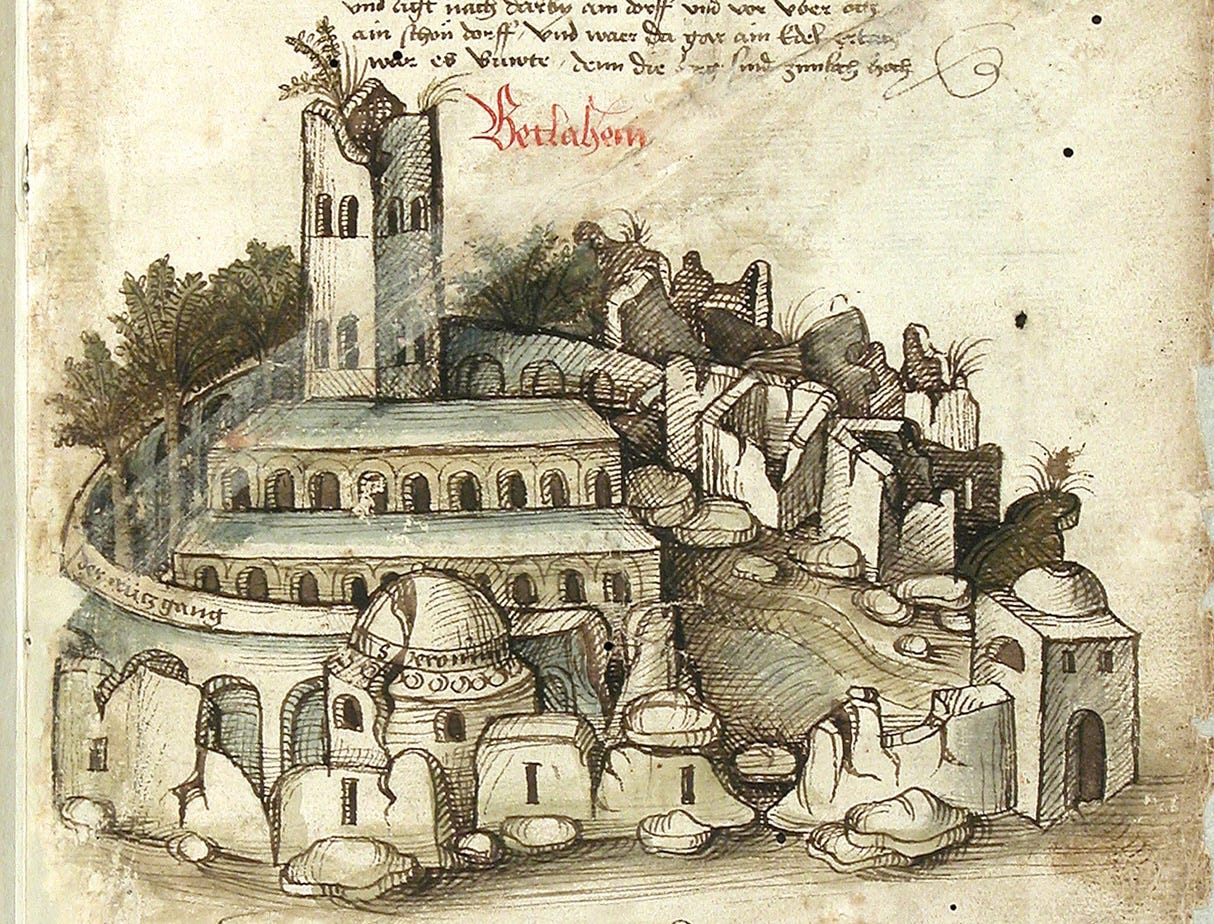 vnd ligt nach darby ain dorff vnd vor
ain schön dorff, vnd waer da gar ain Edel
wär es buwte, denn die sind zimlich hoch
Betlahem
der crútz gang
S Jeronim